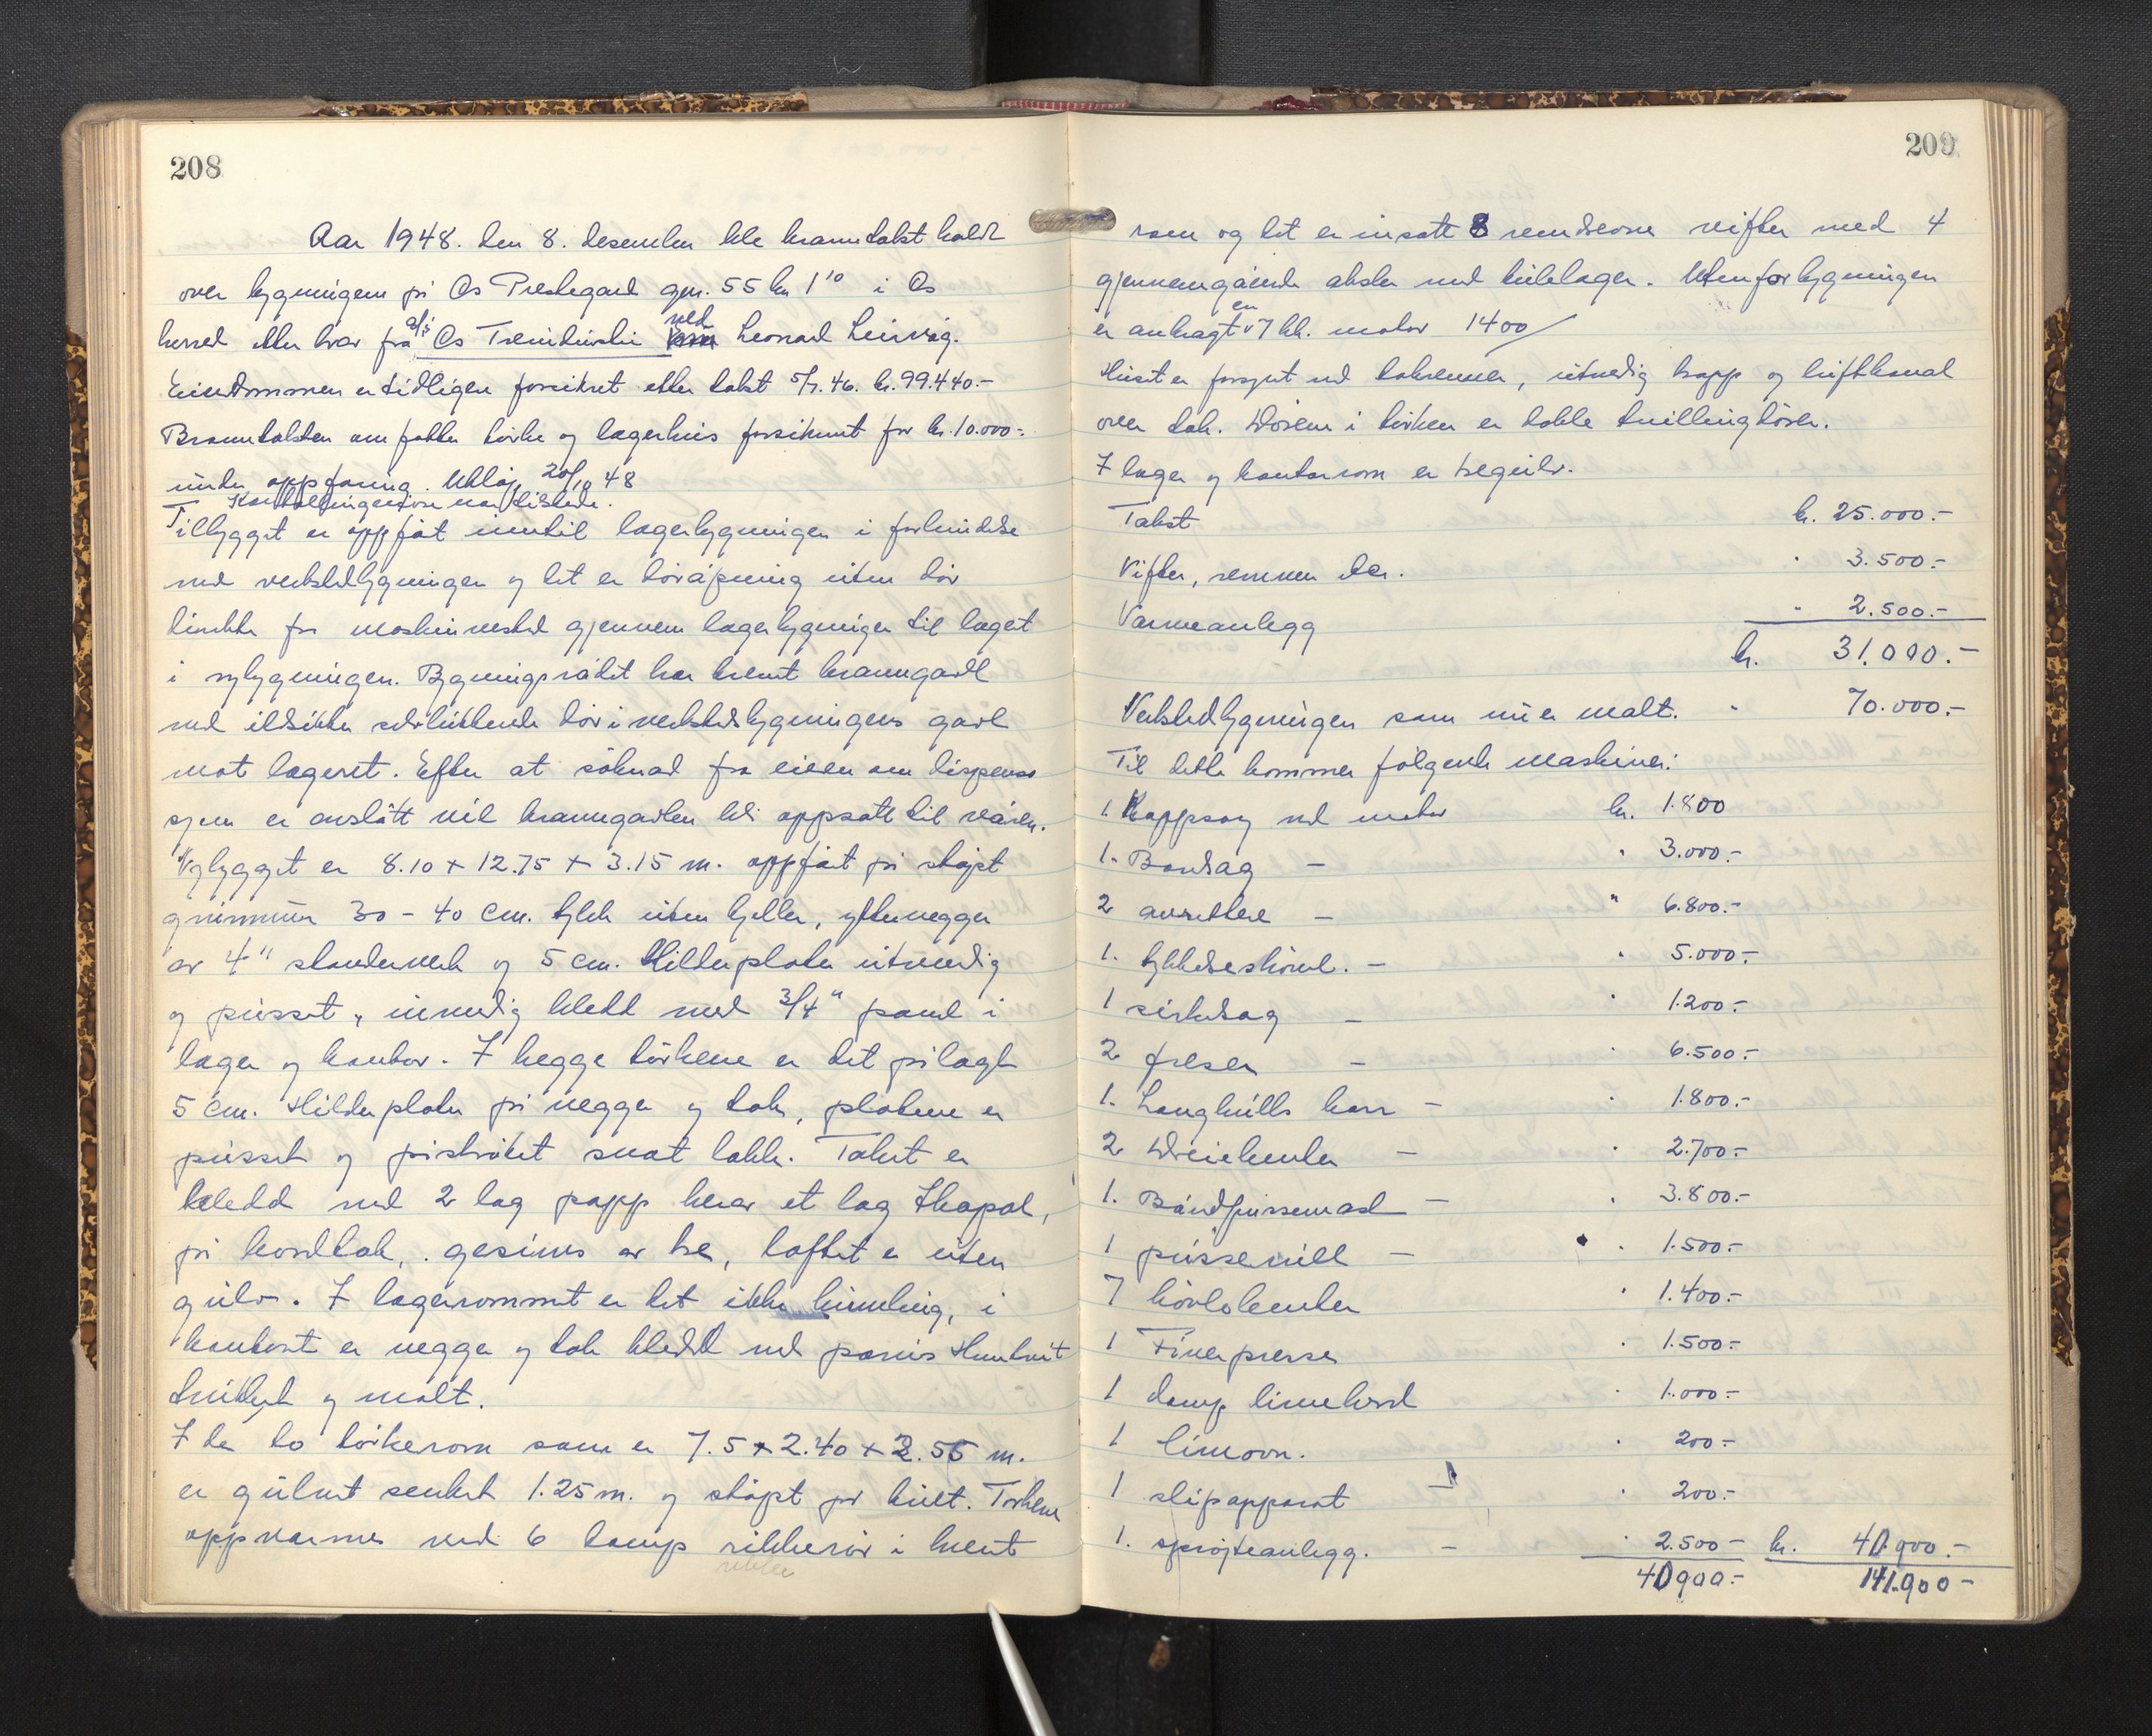 208
Aar 1948. den 8. desember ble branntakst holdt
over bygningen på Os Prestegard gnr. 55 bn 1¹⁰ i Os
herred etter krav fra a/s Os Treindustri ved Leonard Leirvåg.
Eiendommen er tidligere forsikret etter takst 5/7. 46. kr. 99.440.-
Branntaksten omfatter tørke og lagerhus forsikret for kr. 10.000.-
under oppføring. Utløp 20/10 48
Kontrollingeniøren var tilstede.
Tilbygget er oppført inntil lagerbygningen i forbindelse
med verkstedbygningen og det er døråpning uten dør
direkte fra maskinverksted gjennem lagerbygningen til lageret
i nybygningen. Bygningsrådet har krevt branngavl
med ildsikker selvlukkende dør i verkstedbygningens gavl
mot lageret. Efter at søknad fra eieren om dispensa
sjon er avslått vil branngavlen bli oppsatt til våren.
Nybygget er 8.10 + 12.75 + 3.15 m. oppført på støpt
grunnmur 30 - 40 cm. tykk uten kjeller, yttervegger
av 4" stenderverk og 5 cm. Hilderplater utvendig
og pusset, innvendig kledd med 3/4" panel i
lager og kontor. I begge tørkene er det pålagt
5 cm. Hilderplater på vegger og tak, platene er
pusset og påstrøket svart lakk. Taket er
kledd med 2 lag papp herav et lag Shapal,
på bordtak, gesims av tre, loftet er uten
gulv. I lagerrommet er det ikke himling, i
kontoret er vegger og tak kledd med panis Huntonit
trukket og malt.
I de to tørkerom som er 7.5 + 2.40 + 2.55 m.
er gulvet senket 1.25 m. og støpt på kult. Tørkene
oppvarmes ved 6 damp ribberør i hvert
ribbe
209
rom og det er innsatt 8 remdrevne vifter med 4
gjennemgående aksler med kulelager. Utenfor bygningen
er anbragt en 7 hk. motor 1400/
Huset er forsynt med takrenner, utvendig trapp og luftkanal
over tak. Dørene i tørken er doble tvillingdører.
I lager og kontorrom er tregulv.
Takst kr. 25.000.-
Vifter, remmer etc. " 3.500.-
Varmeanlegg " 2.500.-
kr. 31.000.-
Verkstedbygningen som nu er malt. " 70.000.-
Til dette kommer følgende maskiner:
1 Kappsag med motor kr. 1.800
1. Bandsag — " 3.000.-
2 avrettere — " 6.800.-
1. tykkelseshøvel. — " 5.000.-
1 sirkelsag — " 1.200.-
2 freser — " 6.500.-
1. Langhulls bor — " 1.800.-
2 Dreiebenker — " 2.700.-
1. Båndpussemask — " 3.800.-
1 pusserull — " 1.500.-
7 høvlebenker " 1.400.-
1 Finerpresse " 1.500.-
1 damp limebord " 1.000.-
1 limovn. " 200.-
1 slipapparat — " 200.-
1. sprøjteanlegg. — " 2.500.- kr. 40.900.-
40900.- 141.900-